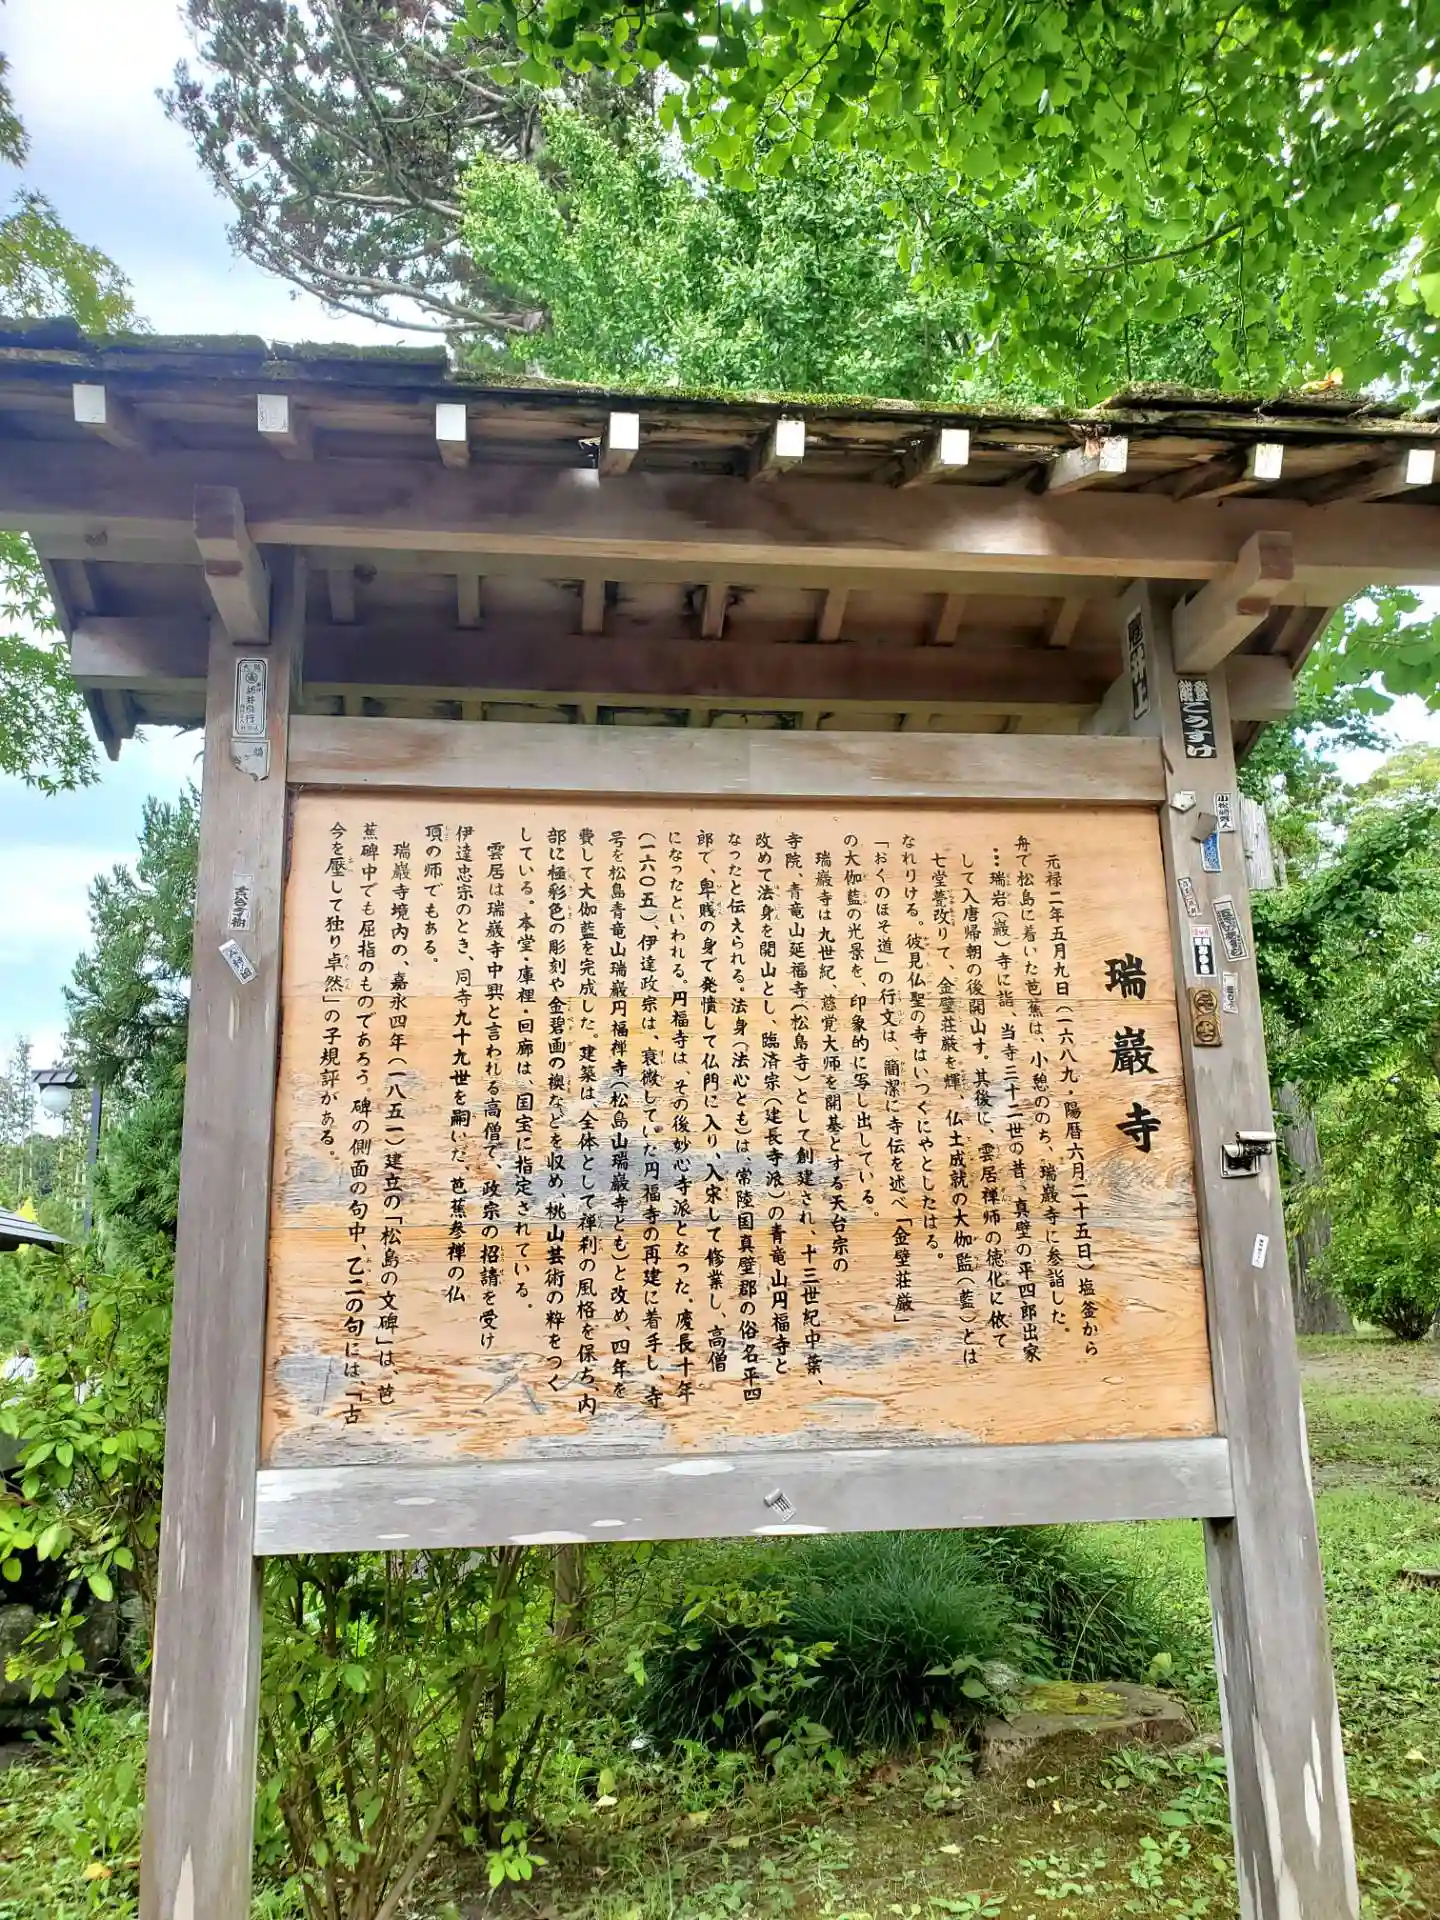 瑞巌寺
元禄二年五月九日(一六八九・陽暦六月二十五日)塩釜から
舟で松島に着いた芭蕉は、小憩ののち、瑞巌寺に参詣した。
…瑞岩(巌)寺に詣、当寺三十二世の昔、真壁の平四郎出家
して入唐帰朝の後開山す。其後に、雲居禅師の徳化に依て
七堂甍改りて、金壁荘厳を輝、仏土成就の大伽監(藍)とは
なれりける。彼見仏聖の寺はいつくにやとしたはる。
「おくのほそ道」の行文は、簡潔に寺伝を述べ「金壁荘厳」
の大伽藍の光景を、印象的に写し出している。
瑞巌寺は九世紀、慈覚大師を開基とする天台宗の
寺院、青竜山延福寺(松島寺)として創建され、十三世紀中葉、
改めて法身を開山とし、臨済宗(建長寺派)の青竜山円福寺と
なったと伝えられる。法身(法心とも)は、常陸国真壁郡の俗名平四
郎で、卑賎の身で発憤して仏門に入り、入宋して修業し、高僧
になったといわれる。円福寺は、その後妙心寺派となった。慶長十年
(一六〇五)、伊達政宗は、衰微していた円福寺の再建に着手し、寺
号を松島青竜山瑞巌円福禅寺(松島山瑞巌寺とも)と改め、四年を
費して大伽藍を完成した。建築は、全体として禅刹の風格を保ち、内
部に極彩色の彫刻や金碧画の襖などを収め、桃山芸術の粋をつく
している。本堂・庫裡・回廊は、国宝に指定されている。
雲居は瑞巌寺中興と言われる高僧で、政宗の招請を受け
伊達忠宗のとき、同寺九十九世を嗣いだ、芭蕉参禅の仏
頂の師でもある。
瑞巌寺境内の、嘉永四年(一八五一)建立の「松島の文碑」は、芭
蕉碑中でも屈指のものであろう。碑の側面の句中、乙二の句には、「古
今を壓して独り卓然」の子規評がある。
こうすけ